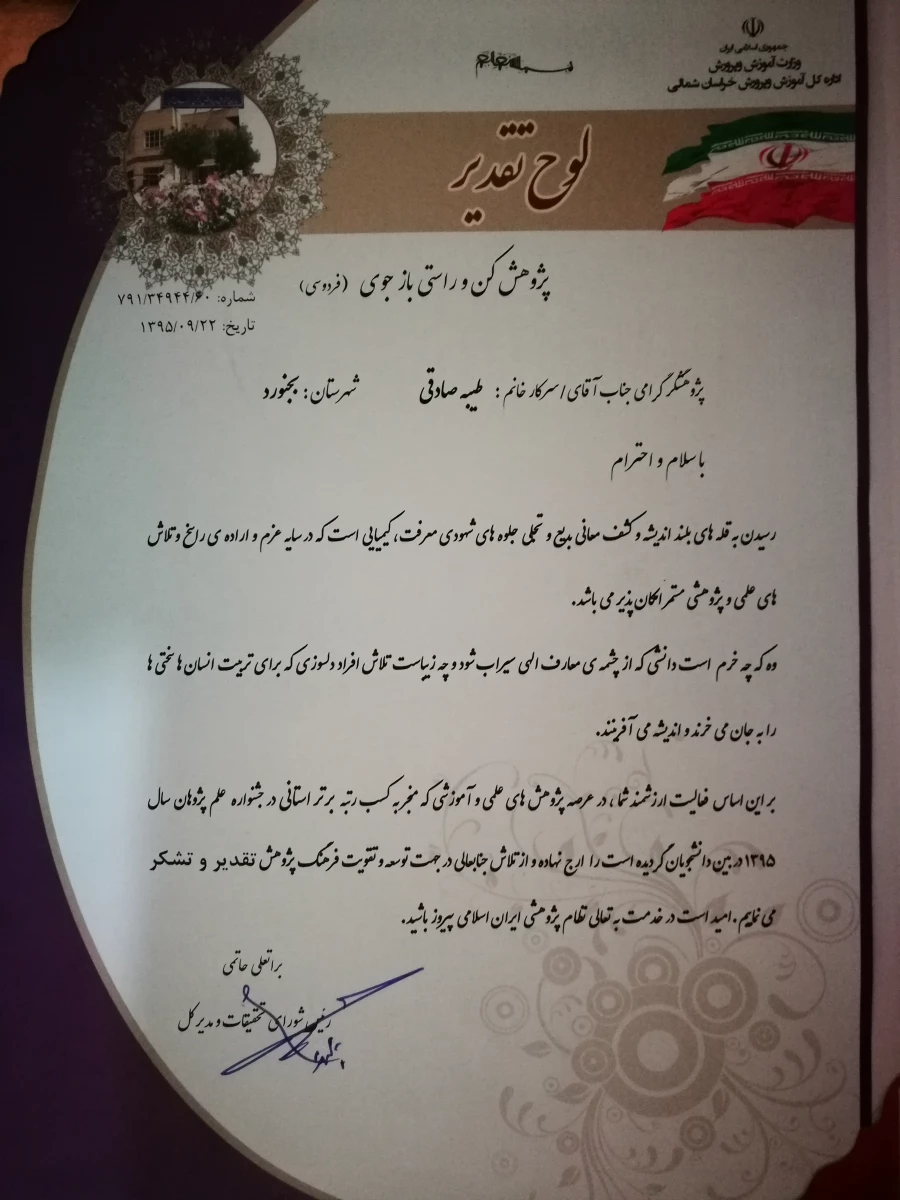 بسمه تعالی
جمهوری اسلامی ایران
وزارت آموزش وپرورش
اداره کل آموزش وپرورش خراسان شمالی
لوح تقدیر
پژوهش کن و راستی باز جوی (فردوسی)
شماره: ۷۹۱/۳۴۹۴۴/۶۰
تاریخ: ۱۳۹۵/۰۹/۲۲
پژوهشگر گرامی جناب آقای/سرکار خانم: طیبه صادقی شهرستان: بجنورد
با سلام و احترام
رسیدن به قله های بلند اندیشه و کشف معانی بدیع و تجلی جلوه های شهودی معرفت، کیمیایی است که در سایه عزم و اراده ی راسخ و تلاش
های علمی و پژوهشی مستمر امکان پذیر می باشد.
وه که چه خرم است دانشی که از چشمه ی معارف الهی سیراب شود و چه زیباست تلاش افراد دلسوزی که برای تربیت انسان ها سختی ها
را به جان می خرند و اندیشه می آفرینند.
بر این اساس فعالیت ارزشمند شما، در عرصه پژوهش های علمی و آموزشی که منجر به کسب رتبه برتر استانی در جشنواره علم پژوهان سال
۱۳۹۵ در بین دانشجویان گردیده است را ارج نهاده و از تلاش جنابعالی در جهت توسعه و تقویت فرهنگ پژوهش تقدیر و تشکر
می نماییم. امید است در خدمت به تعالی نظام پژوهشی ایران اسلامی پیروز باشید.
براتعلی حاتمی
رئیس شورای تحقیقات و مدیر کل